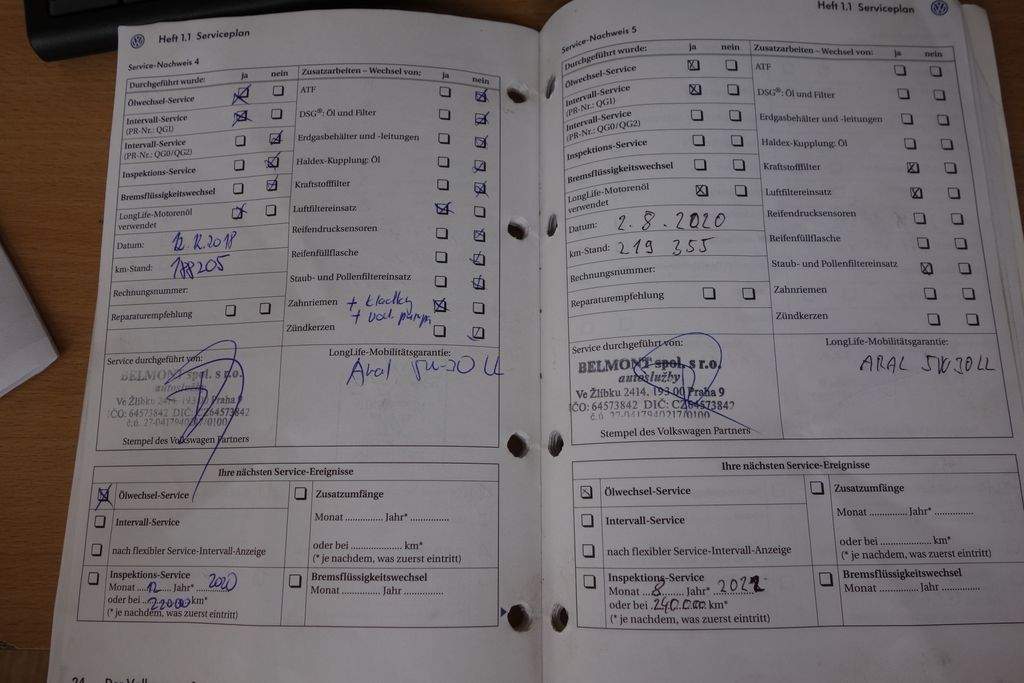 Heft 1.1 Serviceplan
Service-Nachweis 4
Durchgeführt wurde: ja nein
Ölwechsel-Service
Intervall-Service
(PR-Nr.: QG1)
Intervall-Service
(PR-Nr.: QG0/QG2)
Inspektions-Service
Bremsflüssigkeitswechsel
LongLife-Motorenöl
verwendet
Datum: 12.12.2018
km-Stand: 188205
Rechnungsnummer:
Reparaturempfehlung
Zusatzarbeiten – Wechsel von: ja nein
ATF
DSG®: Öl und Filter
Erdgasbehälter und -leitungen
Haldex-Kupplung: Öl
Kraftstofffilter
Luftfiltereinsatz
Reifendrucksensoren
Reifenfüllflasche
Staub- und Pollenfiltereinsatz
Zahnriemen + kladky
+ vod. pumpa
Zündkerzen
Service durchgeführt von:
BELMONT spol. s r.o.
autoslužby
Ve Žlíbku 2414, 193 00 Praha 9
IČO: 64573842 DIČ: CZ64573842
č.ú. 27-0417940217/0100
Stempel des Volkswagen Partners
LongLife-Mobilitätsgarantie:
Aral 5W-30 LL
Ihre nächsten Service-Ereignisse
Ölwechsel-Service
Intervall-Service
nach flexibler Service-Intervall-Anzeige
Inspektions-Service
Monat 12 Jahr* 2020
oder bei 220000 km*
(* je nachdem, was zuerst eintritt)
Zusatzumfänge
Monat ............... Jahr* ...............
oder bei .................... km*
(* je nachdem, was zuerst eintritt)
Bremsflüssigkeitswechsel
Monat ............... Jahr ...............
Heft 1.1 Serviceplan
Service-Nachweis 5
Durchgeführt wurde: ja nein
Ölwechsel-Service
Intervall-Service
(PR-Nr.: QG1)
Intervall-Service
(PR-Nr.: QG0/QG2)
Inspektions-Service
Bremsflüssigkeitswechsel
LongLife-Motorenöl
verwendet
Datum: 2.8.2020
km-Stand: 219 355
Rechnungsnummer:
Reparaturempfehlung
Zusatzarbeiten – Wechsel von: ja nein
ATF
DSG®: Öl und Filter
Erdgasbehälter und -leitungen
Haldex-Kupplung: Öl
Kraftstofffilter
Luftfiltereinsatz
Reifendrucksensoren
Reifenfüllflasche
Staub- und Pollenfiltereinsatz
Zahnriemen
Zündkerzen
Service durchgeführt von:
BELMONT spol. s r.o.
autoslužby
Ve Žlíbku 2414, 193 00 Praha 9
IČO: 64573842 DIČ: CZ64573842
č.ú. 27-0417940217/0100
Stempel des Volkswagen Partners
LongLife-Mobilitätsgarantie:
ARAL 5W30LL
Ihre nächsten Service-Ereignisse
Ölwechsel-Service
Intervall-Service
nach flexibler Service-Intervall-Anzeige
Inspektions-Service
Monat 8 Jahr* 2022
oder bei 240.000 km*
(* je nachdem, was zuerst eintritt)
Zusatzumfänge
Monat ............... Jahr* ...............
oder bei .................... km*
(* je nachdem, was zuerst eintritt)
Bremsflüssigkeitswechsel
Monat ............... Jahr ...............